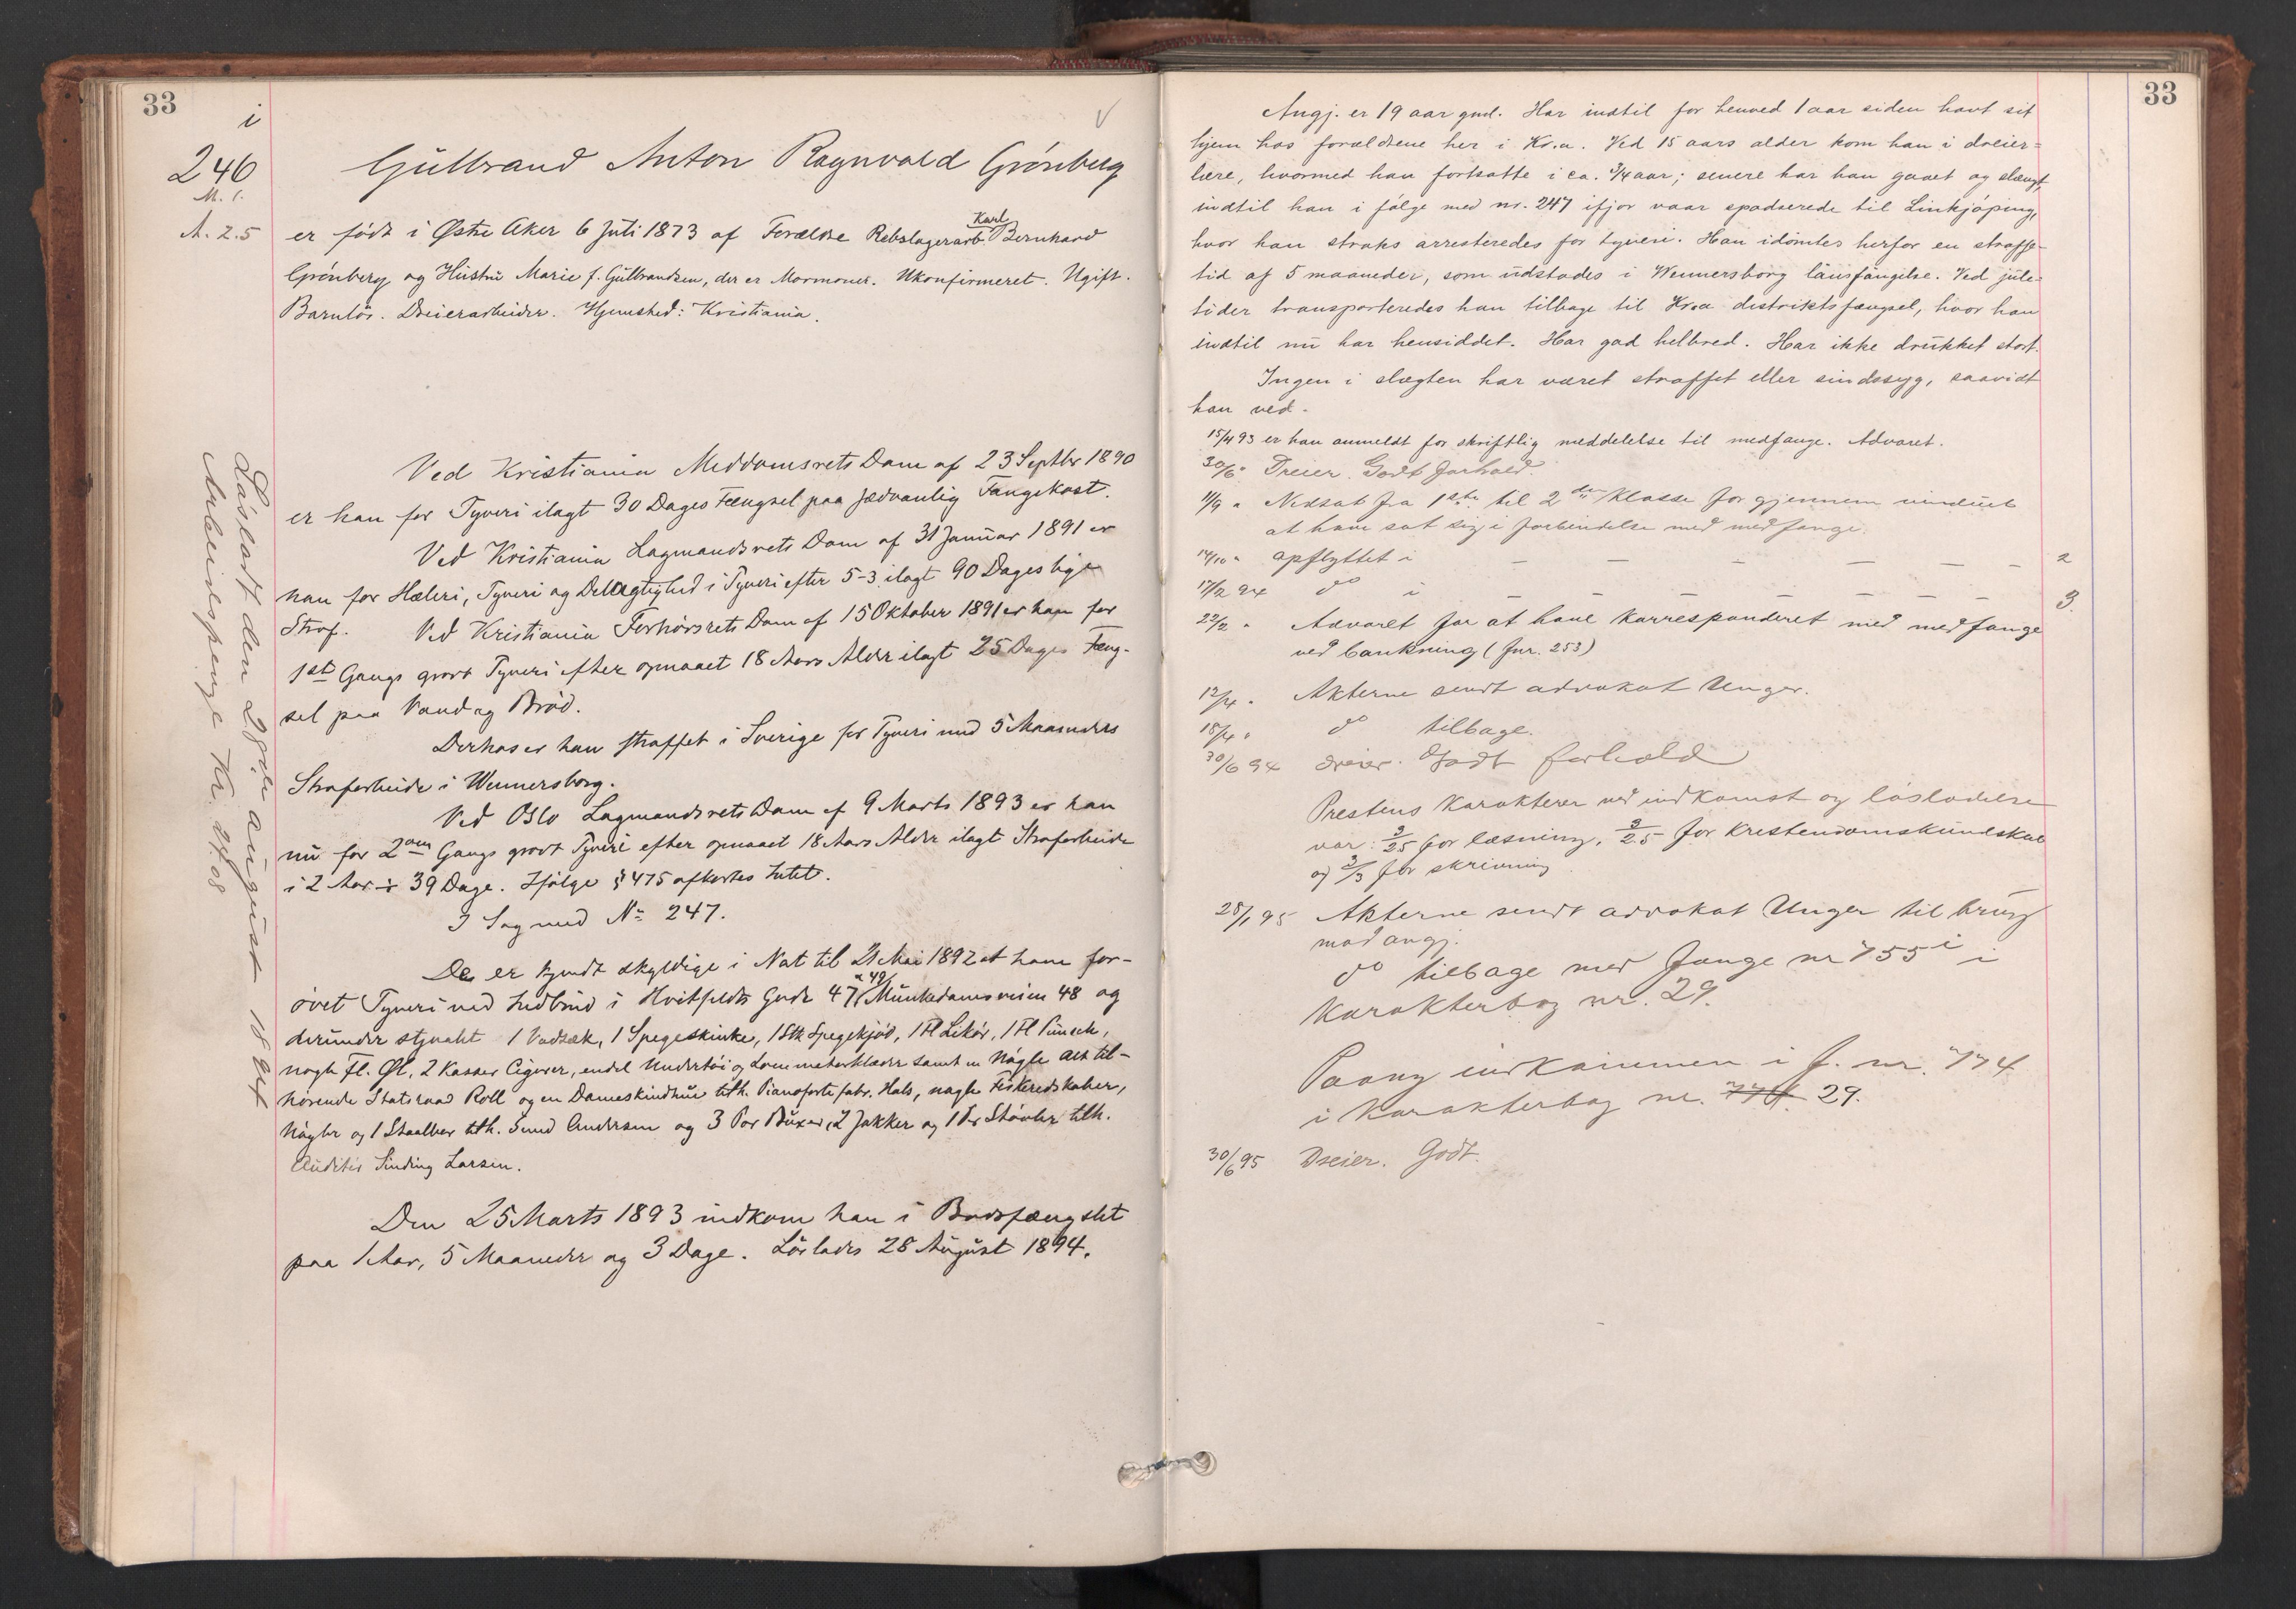 33
i
246
M. 1.
A. 2.5
Gulbrand Anton Ragnvald Grönberg
er født i Østre Aker 6 Juli 1873 af Forældre Rebslagerarb. Karl Bernhard
Grönberg og Hustru Marie f. Gulbrandsen, der er Mormoner. Ukonfirmeret. Ugift.
Barnlös. Dreierarbeider. Hjemsted: Kristiania.
Ved Kristiania Meddomsrets Dom af 23 Septbr 1890
er han for Tyveri ilagt 30 Dages Fængsel paa sædvanlig Fangekost.
Ved Kristiania Lagmandsrets Dom af 31 Januar 1891 er
han for Hæleri, Tyveri og Delagtighed i Tyveri efter 5-3 ilagt 90 Dages lige
Straf. Ved Kristiania Forhörsrets Dom af 15 Oktober 1891 er han for
1st Gangs grovt Tyveri efter opnaaet 18 Aars Alder ilagt 25 Dages Fæng-
sel paa Vand og Bröd.
Derhos er han straffet i Sverige for Tyveri med 5 Maaneders
Strafarbeide i Wennersborg.
Ved Oslo Lagmandsrets Dom af 9 Marts 1893 er han
nu for 2den Gangs grovt Tyveri efter opnaaet 18 Aars Alder ilagt Strafarbeide
i 2 Aar ÷ 39 Dage. Ifölge § 475 afkortes Intet.
I Sag med No 247.
De er kjendt skyldige i Nat til 21 Mai 1892 at have for-
övet Tyveri ved Indbrud i Hvitfeldts Gade 47 & 49, Munkedamsveien 48 og
derunder stjaalet 1 Vadsæk, 1 Spegeskinke, 1 Stk Spegekjöd, 1 Fl Likör, 1 Fl Punsch,
nogle Fl. Øl, 2 Kasser Cigarer, endel Undertöi og Lommetörklæder samt en Nögle alt til-
hörende Statsraad Roll og en Dameskindhue tilh. Pianofortefabr. Hals, nogle Fiskeredskaber,
Nögler og 1 Staalber tilh. Smed Andersen og 3 Par Buxer, 2 Jakker og 1 Pr Stövler tilh.
Auditör Sinding Larsen.
Den 25 Marts 1893 indkom han i Bodsfængslet
paa 1 Aar, 5 Maaneder og 3 Dage. Löslades 28 August 1894.
Lösladt den 28de august 1894
Arbeidspenge Kr. 27.08
33
Angj. er 19 aar gml. Har indtil for henved 1 aar siden havt sit
hjem hos forældrene her i Kr.a. Ved 15 aars alder kom han i dreier-
lære, hvormed han fortsatte i ca. 3/4 aar; senere har han gaaet og slængt,
indtil han i fölge med nr. 247 ifjor vaar spadserede til Linkjöping,
hvor han straks arresteredes for tyveri. Han idömtes herfor en straffe-
tid af 5 maaneder, som udstodes i Wennersborg länsfängelse. Ved jule-
tider transporteredes han tilbage til Kr.a distriktsfængsel, hvor han
indtil nu har hensiddet. Har god helbred. Har ikke drukket stort.
Ingen i slægten har været straffet eller sindssyg, saavidt
han ved.
15/4 93 er han anmeldt for skriftlig meddelelse til medfange. Advaret.
30/6 " Dreier. Godt forhold.
11/9 " Nedsat fra 1ste til 2den Klasse for gjennem vinduet
at have sat sig i forbindelse med medfange.
14/10 " opflyttet i — — — — — — 2
17/2 94 do i — — — — — — 3.
22/2 " Advaret for at have korresponderet med medfange
ved bankning (Jnr. 253)
12/4 " Akterne sendt advokat Unger.
18/4 " do tilbage.
30/6 94 dreier. Godt forhold
Prestens Karakterer ved indkomst og lösladelse
var: 3/2.5 for læsning, 3/2.5 for kristendomskundskab
og 3/3 for skrivning
28/1 95 Akterne sendt advokat Unger til brug
mod angj.
do tilbage med fange nr 755 i i
karakterbog nr. 29.
Paany indkommen i f. nr. 774
i karakterbog nr. 774. 29.
30/6 95 Dreier. Godt.